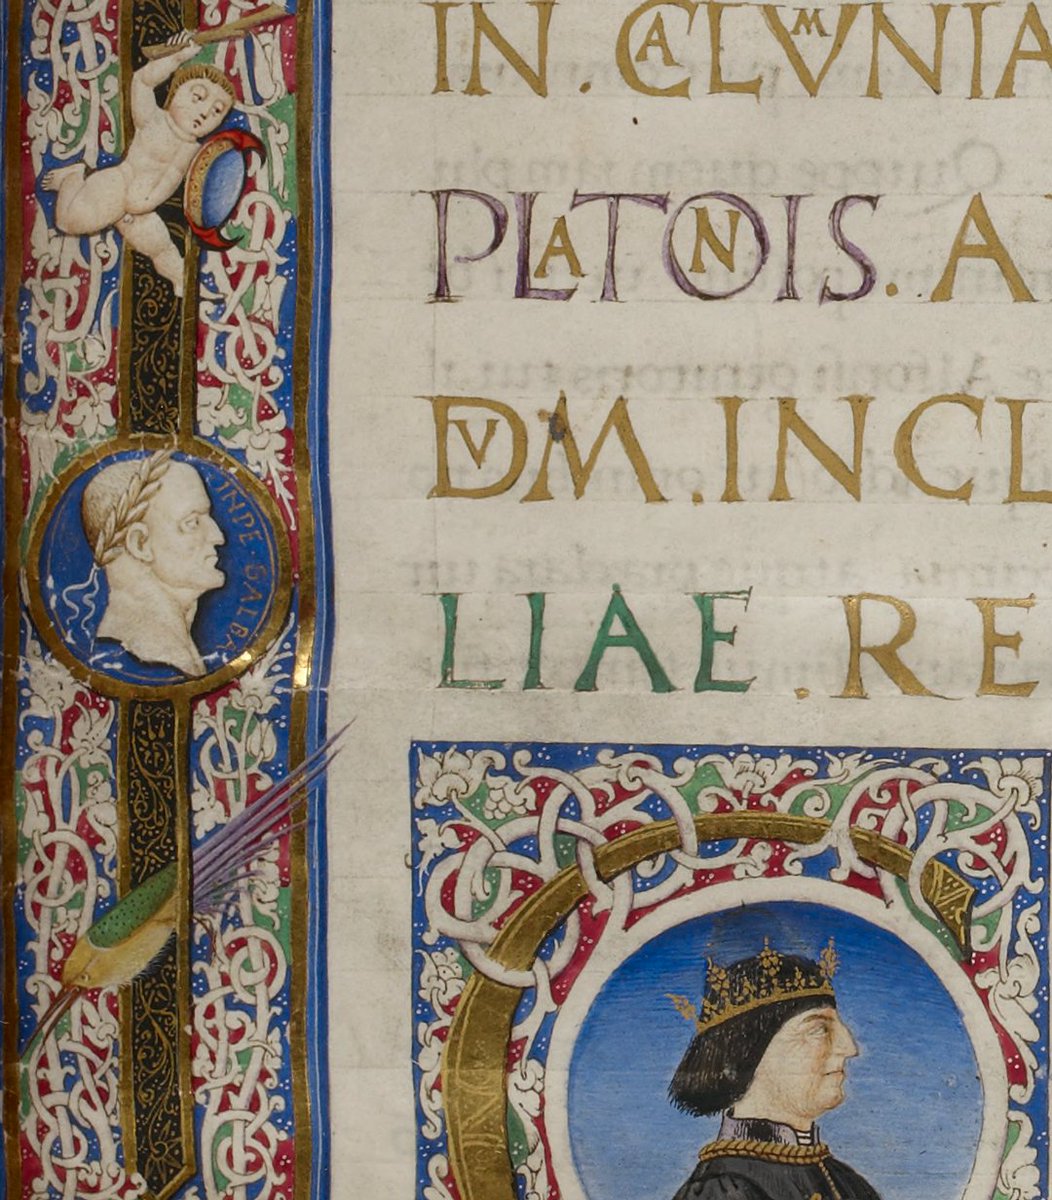 IN. CALVMNIA
PLATONIS. A
DVM. INCL
LIAE. RE
INPE · GALBA